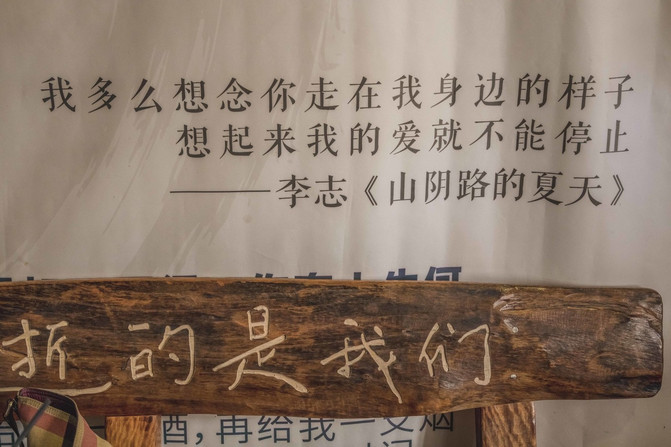 我多么想念你走在我身边的样子
想起来我的爱就不能停止
——李志《山阴路的夏天》
的是我们
酒，再给我一支烟